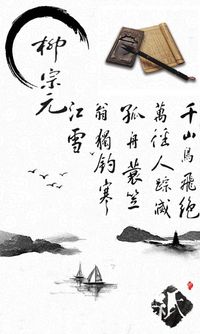 千山鸟飛绝
萬徑人踪滅
孤舟蓑笠
翁獨钓寒
江雪
柳宗元